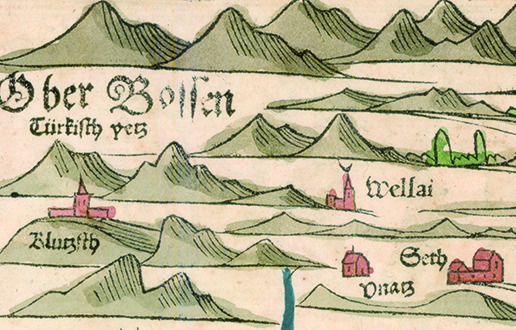 Ober Bossen
Türkisch yetz
Wellai
Klutzsch
Seth
Vnatz